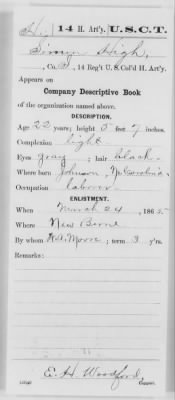 H | 14 H. Art'y. | U.S.C.T.
Simon High,
, Co. , 14 Reg't U. S. Col'd H. Art'y.
Appears on
Company Descriptive Book
of the organization named above.
DESCRIPTION.
Age 22 years; height 5 feet 7 inches.
Complexion light
Eyes gray; hair black
Where born Johnson, N. Carolina
Occupation laborer
ENLISTMENT.
When March 24, 1865.
Where New Berne
By whom Moore; term 3 y'rs.
Remarks:
E. H. Woodford,
Copyist.